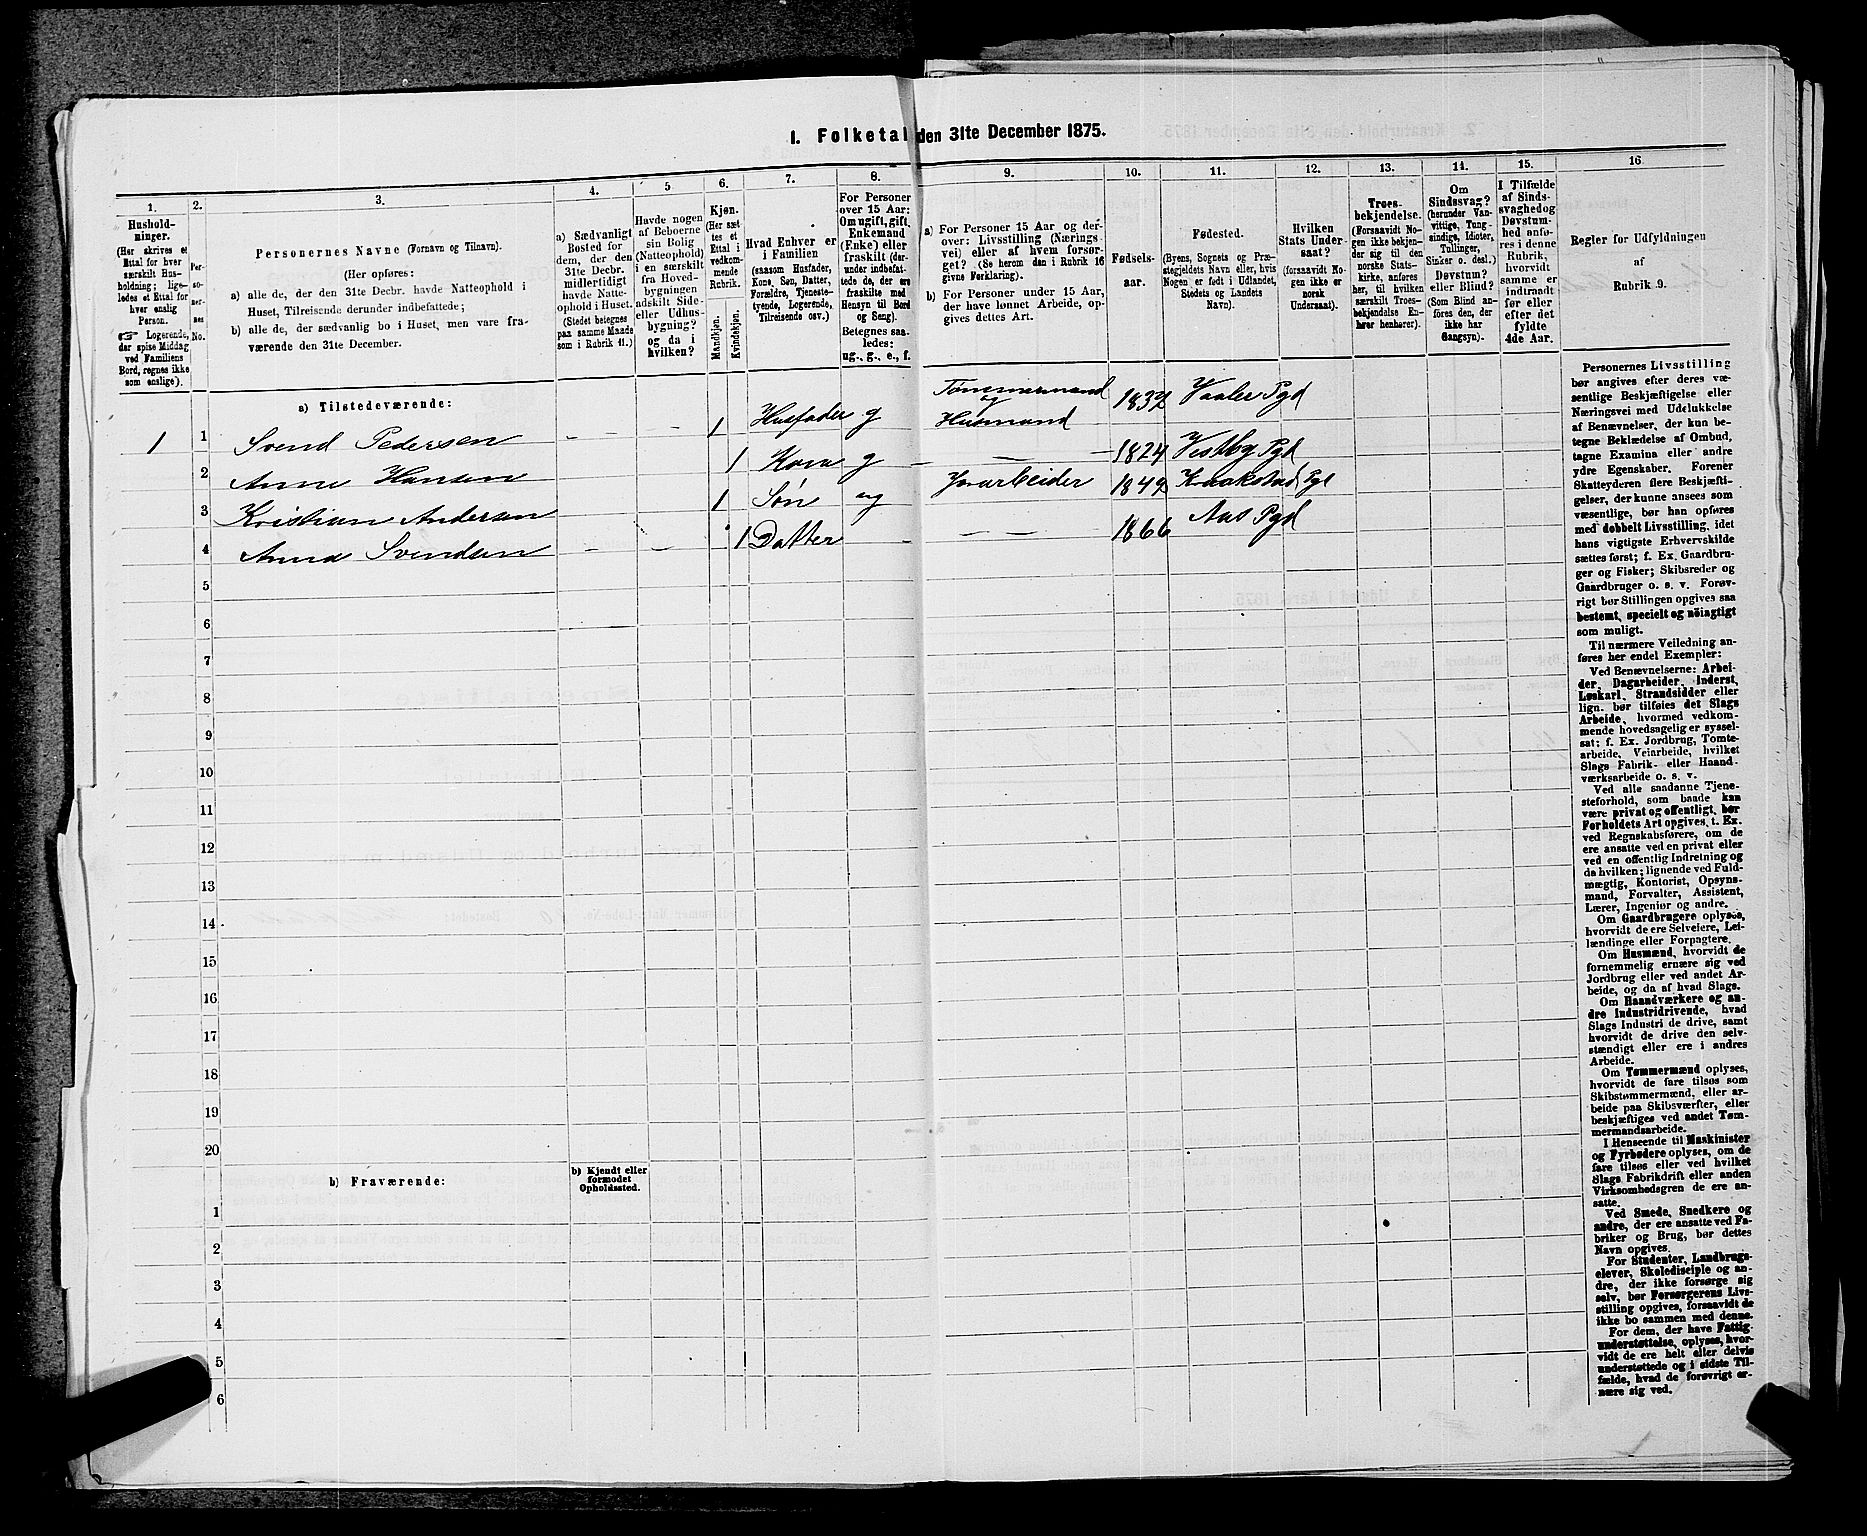 1. Folketal den 31te December 1875.
1.
Hushold-
ninger.
(Her skrives et
Ettal for hver
særskilt Hus-
holdning; lige-
ledes et Ettal for
hver enslig
Person.
☞ Logerende,
der spise Middag
ved Familiens
Bord, regnes ikke
som enslige).
2.
Per-
so-
ner-
nes
No.
3.
Personernes Navne (Fornavn og Tilnavn).
(Her opføres:
a) alle de, der den 31te Decbr. havde Natteophold i
Huset, Tilreisende derunder indbefattede;
b) alle de, der sædvanlig bo i Huset, men vare fra-
værende den 31te December.
4.
a) Sædvanligt
Bosted for
dem, der den
31te Decbr.
midlertidigt
havde Natte-
ophold i Huset.
(Stedet betegnes
paa samme Maade
som i Rubrik 11.)
5
Havde nogen
af Beboerne
sin Bolig
(Natteophold)
i en særskilt
fra Hoved-
bygningen
adskilt Side-
eller Udhus-
bygning?
og da i
hvilken?
6.
Kjøn.
(Her sæt-
tes et
Ettal i
vedkom-
mende
Rubrik.
Mandkjøn.
Kvindekjøn.
7.
Hvad Enhver er
i Familien
(saasom Husfader,
Kone, Søn, Datter,
Forældre, Tjeneste-
tyende, Logerende,
Tilreisende osv.)
8.
For Personer
over 15 Aar:
Om ugift, gift,
Enkemand
(Enke) eller
fraskilt (der-
under indbefat-
tede de, der ere
fraskilte med
Hensyn til Bord
og Seng).
Betegnes saa-
ledes:
ug., g., e., f.
9.
a) For Personer 15 Aar og der-
over: Livsstilling (Nærings-
vei) eller af hvem forsør-
get? (Se herom den i Rubrik 16
givne Forklaring).
b) For Personer under 15 Aar,
der have lønnet Arbeide, op-
gives dettes Art.
10.
Fødsels-
aar.
11.
Fødested.
(Byens, Sognets og Præ-
stegjeldets Navn eller, hvis
Nogen er født i Udlandet,
Stedets og Landets
Navn).
12.
Hvilken
Stats Under-
saat?
(forsaavidt No-
gen ikke er
norsk
Undersaat).
13.
Troes-
bekjendelse.
(Forsaavidt No-
gen ikke bekjen-
der sig til den
norske Stats-
kirke, anføres
her, til hvilken
særskilt Troes-
bekjendelse En-
hver henhører).
14.
Om
Sindssvag?
(herunder Van-
vittige, Tung-
sindige, Idioter,
Tullinger,
Sinker o. desl.)
Døvstum?
eller Blind?
(Som Blind an-
føres den, der
ikke har
Gangsyn).
15.
I Tilfælde
af Sinds-
svaghed og
Døvstum-
hed anfø-
res i denne
Rubrik,
hvorvidt
samme er
indtraadt
før eller
efter det
fyldte
4de Aar.
16
Regler for Udfyldningen
af
Rubrik 9.
a) Tilstedeværende:
1 1 Svend Pedersen - - - 1 Husfader g Tømmermand og Husmand 1832 Vaaler Pgd
2 Anne Hansen 1 Kone g - - - 1824 Vestby Pgd
3 Kristian Andersen 1 Søn ug Jorarbeider 1849 Kraakstad Pgl
4 Anna Svendsen - - 1 Datter - - - 1866 Aas Pgd
5
6
7
8
9
10
11
12
13
14
15
16
17
18
19
20
b) Fraværende:
b) Kjendt eller
formodet
Opholdssted.
1
2
3
4
5
6
Personernes Livsstilling
bør angives efter deres væ-
sentlige Beskjæftigelse eller
Næringsvei med Udelukkelse
af Benævnelser, der kun be-
tegne Beklædelse af Ombud,
tagne Examina eller andre
ydre Egenskaber. Forener
Skatteyderen flere Beskjæfti-
gelser, der kunne ansees som
væsentlige, bør han opføres
med dobbelt Livsstilling, idet
hans vigtigste Erhvervskilde
sættes først; f. Ex. Gaardbru-
ger og Fisker; Skibsreder og
Gaardbruger o. s. v. Forøv-
rigt bør Stillingen opgives saa
bestemt, specielt og nöiagtigt
som muligt.
Til nærmere Veiledning an-
føres her endel Exempler:
Ved Benævnelserne: Arbei-
der, Dagarbeider, Inderst,
Løskarl, Strandsidder eller
lign. bør tilføies det Slags
Arbeide, hvormed vedkom-
mende hovedsagelig er syssel-
sat; f. Ex. Jordbrug, Tomte-
arbeide, Veiarbeide, hvilket
Slags Fabrik- eller Haand-
værksarbeide o. s. v.
Ved alle saadanne Tjene-
steforhold, som baade kan
være privat og offentligt, bør
Forholdets Art opgives, t. Ex.
ved Regnskabsførere, om de
ere ansatte ved en privat eller
ved en offentlig Indretning og
da hvilken; lignende ved Fuld-
mægtig, Kontorist, Opsyns-
mand, Forvalter, Assistent,
Lærer, Ingeniør og andre.
Om Gaardbrugere oplyses,
hvorvidt de ere Selveiere, Lei-
lændinge eller Forpagtere.
Om Husmænd, hvorvidt de
fornemmelig ernære sig ved
Jordbrug eller ved andet Ar-
beide, og da af hvad Slags.
Om Haandværkere og an-
dre Industridrivende, hvad
Slags Industri de drive, samt
hvorvidt de drive den selv-
stændigt eller ere i andres
Arbeide.
Om Tømmermænd oplyses,
hvorvidt de fare tilsøs som
Skibstømmermænd, eller ar-
beide paa Skibsværfter, eller
beskjæftiges ved andet Tøm-
mermandsarbeide.
I Henseende til Maskinister
og Fyrbødere oplyses, om de
fare tilsøs eller ved hvilket
Slags Fabrikdrift eller anden
Virksomhedsgren de ere an-
satte.
Ved Smede, Snedkere og
andre, der ere ansatte ved Fa-
briker og Brug, bør dettes
Navn opgives.
For Studenter, Landbrugs-
elever, Skoledisciple og an-
dre, der ikke forsørge sig
selv, bør Forsørgerens Livs-
stilling opgives, forsaavidt de
ikke bo sammen med denne.
For dem, der have Fattig-
understøttelse, oplyses, hvor-
vidt de ere helt eller delvis
understøttede og i sidste Til-
fælde, hvad de forøvrigt er-
nære sig ved.